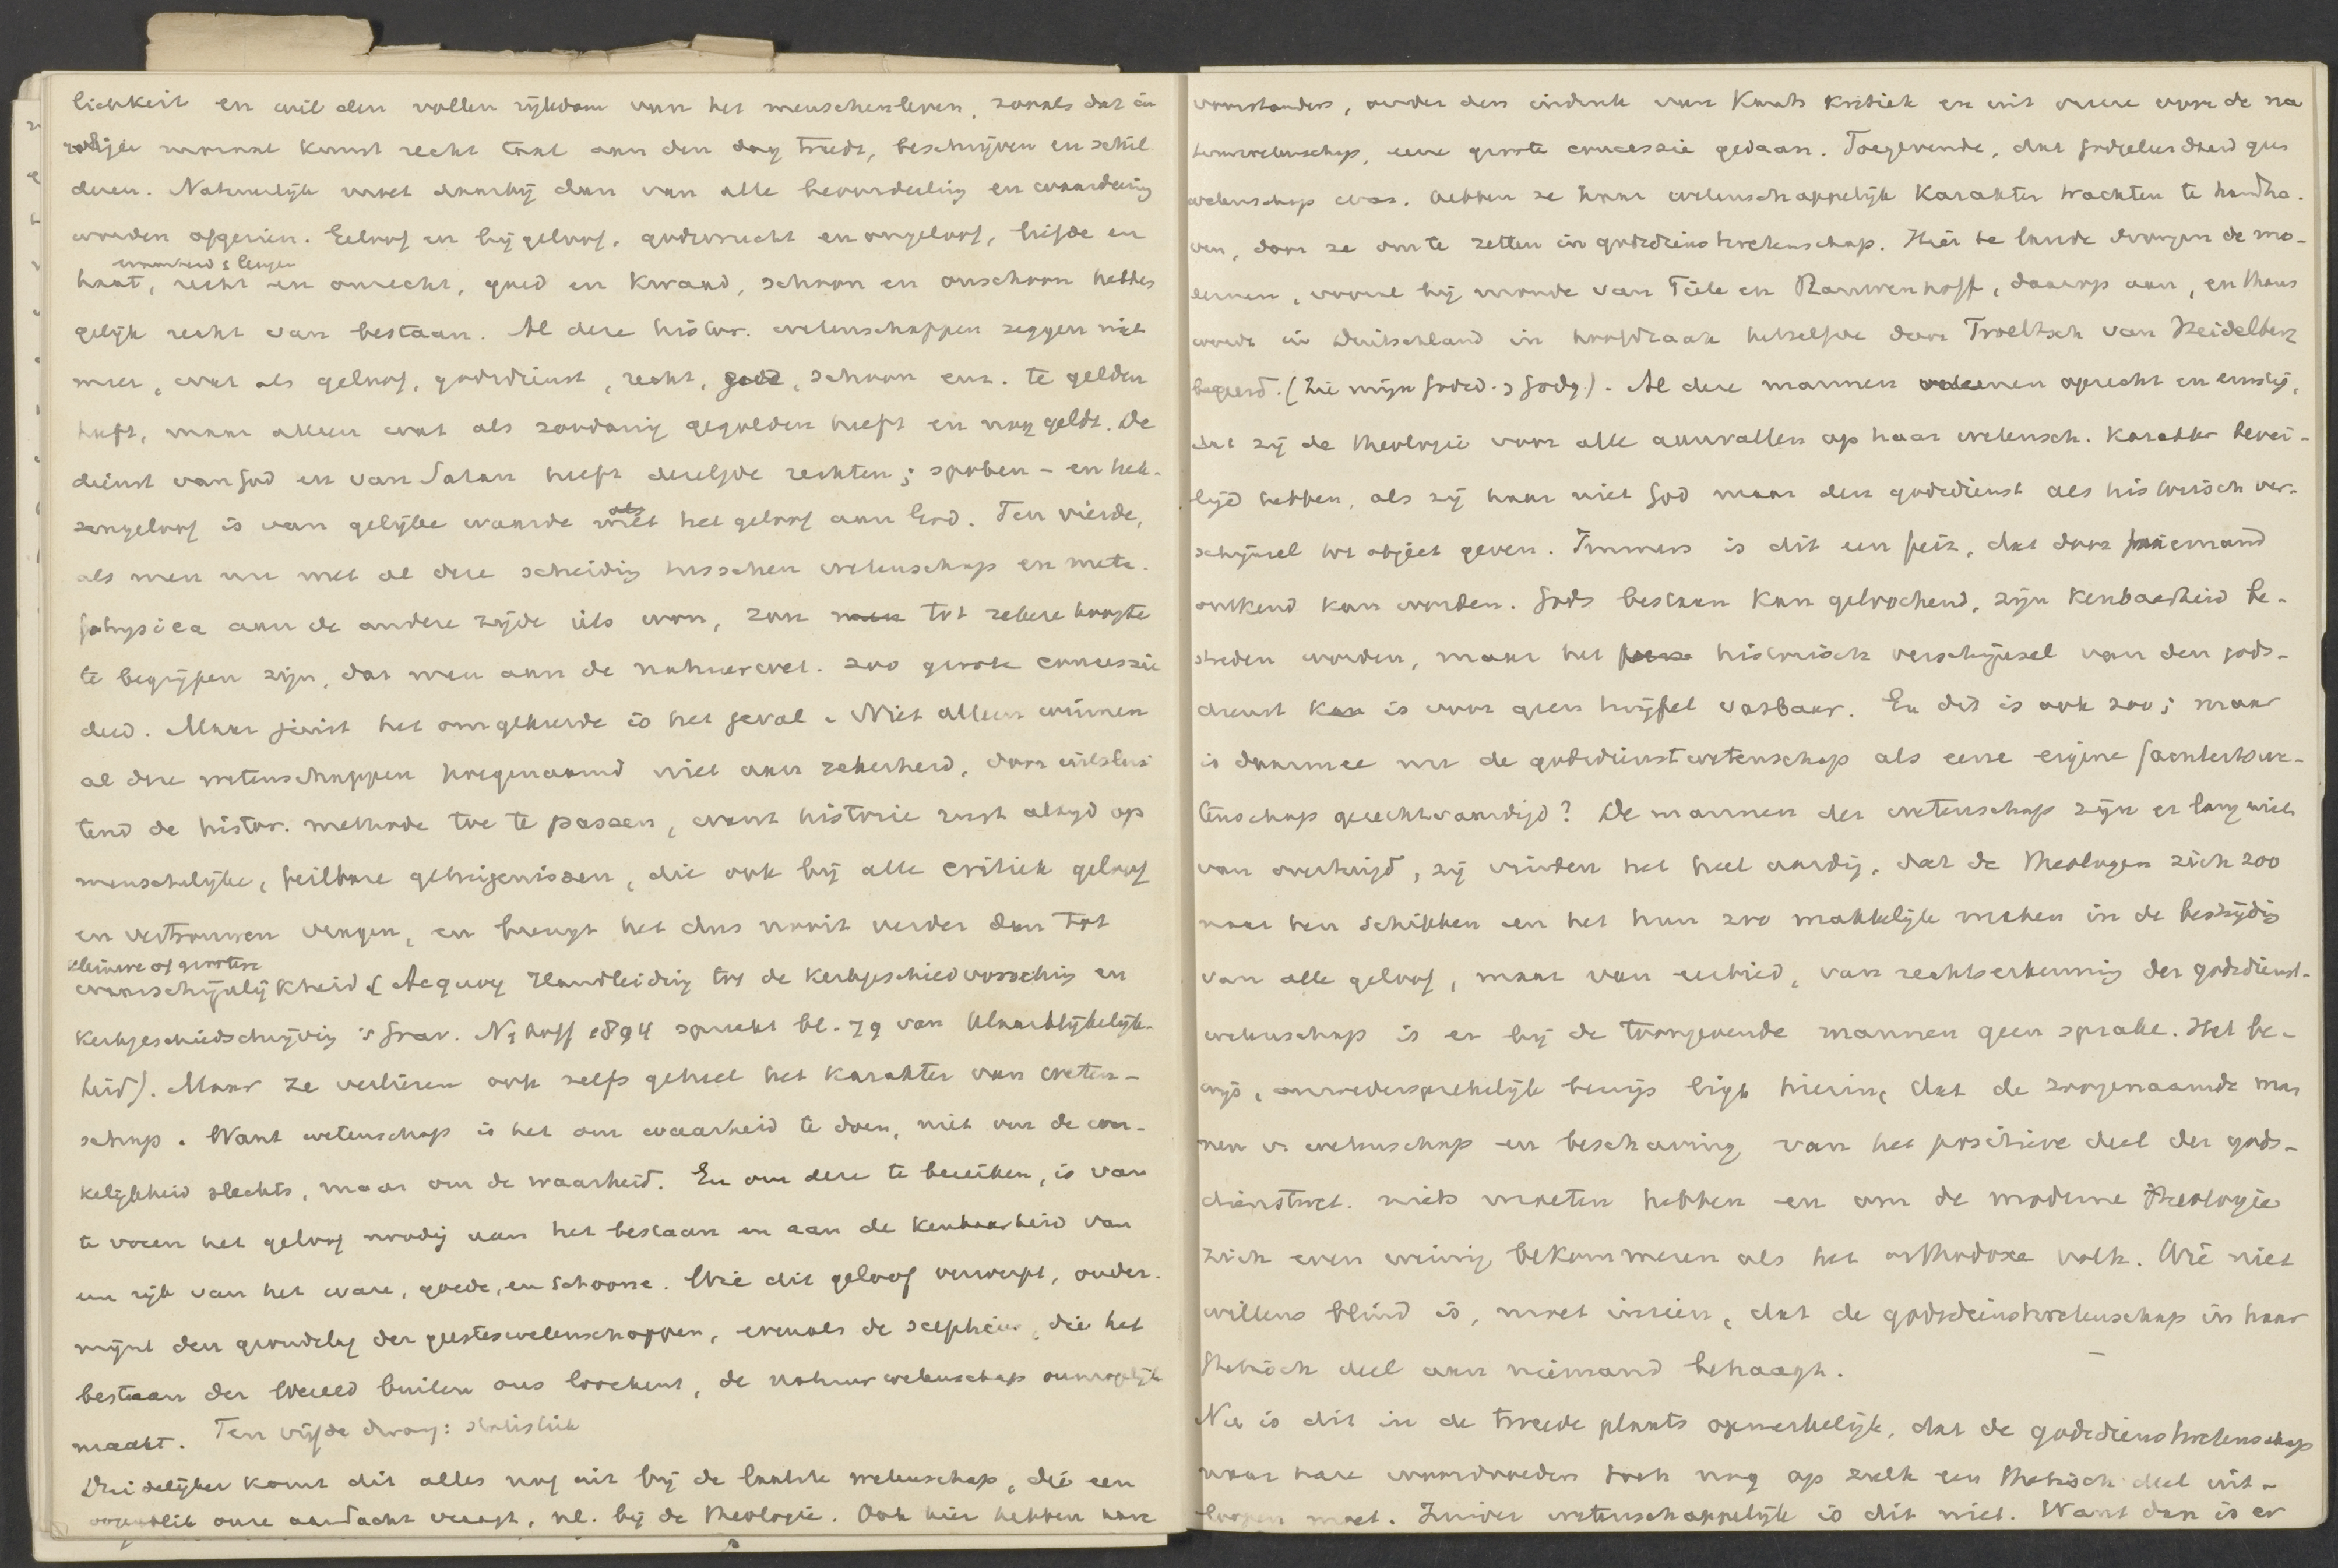 lijkheid en wil den vollen rijkdom van het menschenleven, zooals dat in
kunst recht taal aan den dag treedt, beschrijven en schil
deren. Natuurlijk moet daarbij dan van alle beoordeeling en waardeering
worden afgezien. Geloof en bijgeloof, godsvrucht en ongeloof, liefde en
waarheid & leugen
haat, recht en onrecht, goed en kwaad, schoon en onschoon hebben
gelijk recht van bestaan. Al deze histor. wetenschappen zeggen niet
meer, wat als geloof, godsdienst, recht, goed, schoon enz. te gelden
heeft, maar alleen wat als zoodanig gegolden heeft en nog geldt. De
dienst van God en van Satan heeft dezelfde rechten; spoken- en hek-
sengeloof is van gelijke waarde als het geloof aan God. Ten vierde,
als men nu met al deze scheiding tusschen wetenschap en meta-
physica aan de andere zijde iets won, zou tot zekere hoogte
te begrijpen zijn, dat men aan de natuurwet. zoo groote concessie
deed. Maar juist het omgekeerde is het geval. Niet alleen winnen
al deze wetenschappen hoegenaamd niet aan zekerheid, door uitslui
tend de histor. methode toe te passen, want historie rust altijd op
menschelijke, feilbare getuigenissen, die ook bij alle critiek geloof
en vertrouwen vragen, en brengt het dus nooit verder dan tot
kleinere of grootere
waarschijnlijkheid (Acquoy Handleiding tot de kerkgeschiedvorsching en
kerkgeschiedschrijving 's Grav. Nijhoff 1894 spreekt bl. 79 van Waarschijnlijk-
heid). Maar ze verliezen ook zelfs geheel het karakter van weten-
schap. Want wetenschap is het om waarheid te doen, niet om de wer-
kelijkheid slechts, maar om de waarheid. En om deze te bereiken, is van
te voren het geloof noodig aan het bestaan en aan de kenbaarheid van
een rijk van het ware, goede, en schoone. Wie dit geloof verwerpt, onder-
mijnt den grondslag der geesteswetenschappen, evenals de scepticus, die het
bestaan der wereld buiten ons loochent, de natuurwetenschap onmogelijk
maakt. Ten vijfde dwang: statistiek
Duidelijker komt dit alles nog uit bij de laatste wetenschap, die een
oogenblik onze aandacht vraagt, nl. bij de theologie. Ook hier hebben hare
voorstanders, onder den indruk van Kants kritiek en uit vreeze voor de na
tuurwetenschap, eene groote concessie gedaan. Toegevende, dat Godgeleerdheid geen
wetenschap was, hebben ze haar wetenschappelijk karakter trachten te handha-
ven, door ze om te zetten in godsdienstwetenschap. Hier te lande drongen de mo-
dernen, vooral bij monde van Tiele en Rauwenhoff, daarop aan, en thans
wordt in Duitschland in hoofdzaak hetzelfde door Troeltsch van Heidelberg
begeerd. (Zie mijn Godsd. & Godg.). Al deze mannen meenen oprecht en ernstig,
dat zij de theologie voor alle aanvallen op haar wetensch. karakter bevei-
ligd hebben, als zij haar niet God maar den godsdienst als historisch ver-
schijnsel tot object geven. Immers is dit een feit, dat door niemand
ontkend kan worden. Gods bestaan kan geloochend, zijn kenbaarheid be-
streden worden, maar het historisch verschijnsel van den gods-
dienst is voor geen twijfel vatbaar. En dit is ook zoo; maar
is daarmee nu de godsdienstwetenschap als eene eigene faculteitswe-
tenschap gerechtvaardigd? De mannen der wetenschap zijn er lang niet
van overtuigd, zij vinden het heel aardig, dat de theologen zich zoo
naar hen schikken en het hun zoo makkelijk maken in de bestrijding
van alle geloof, maar van eerbied, van rechtserkenning der godsdienst-
wetenschap is er bij de toongevende mannen geen sprake. Het be-
wijs, onwedersprekelijk bewijs ligt hierin, dat de zoogenaamde man
nen v. wetenschap en beschaving van het positieve deel der gods-
dienstwet. niets moeten hebben en om de moderne theologie
zich even weinig bekommeren als het orthodoxe volk. Wie niet
willens blind is, moet inzien, dat de godsdienstwetenschap in haar
thetisch deel aan niemand behaagt.
Nu is dit in de tweede plaats opmerkelijk, dat de godsdienstwetenschap
naar hare woordvoeders toch nog op zulk een thetisch deel uit-
loopen moet. Zuiver wetenschappelijk is dit niet. Want dan is er